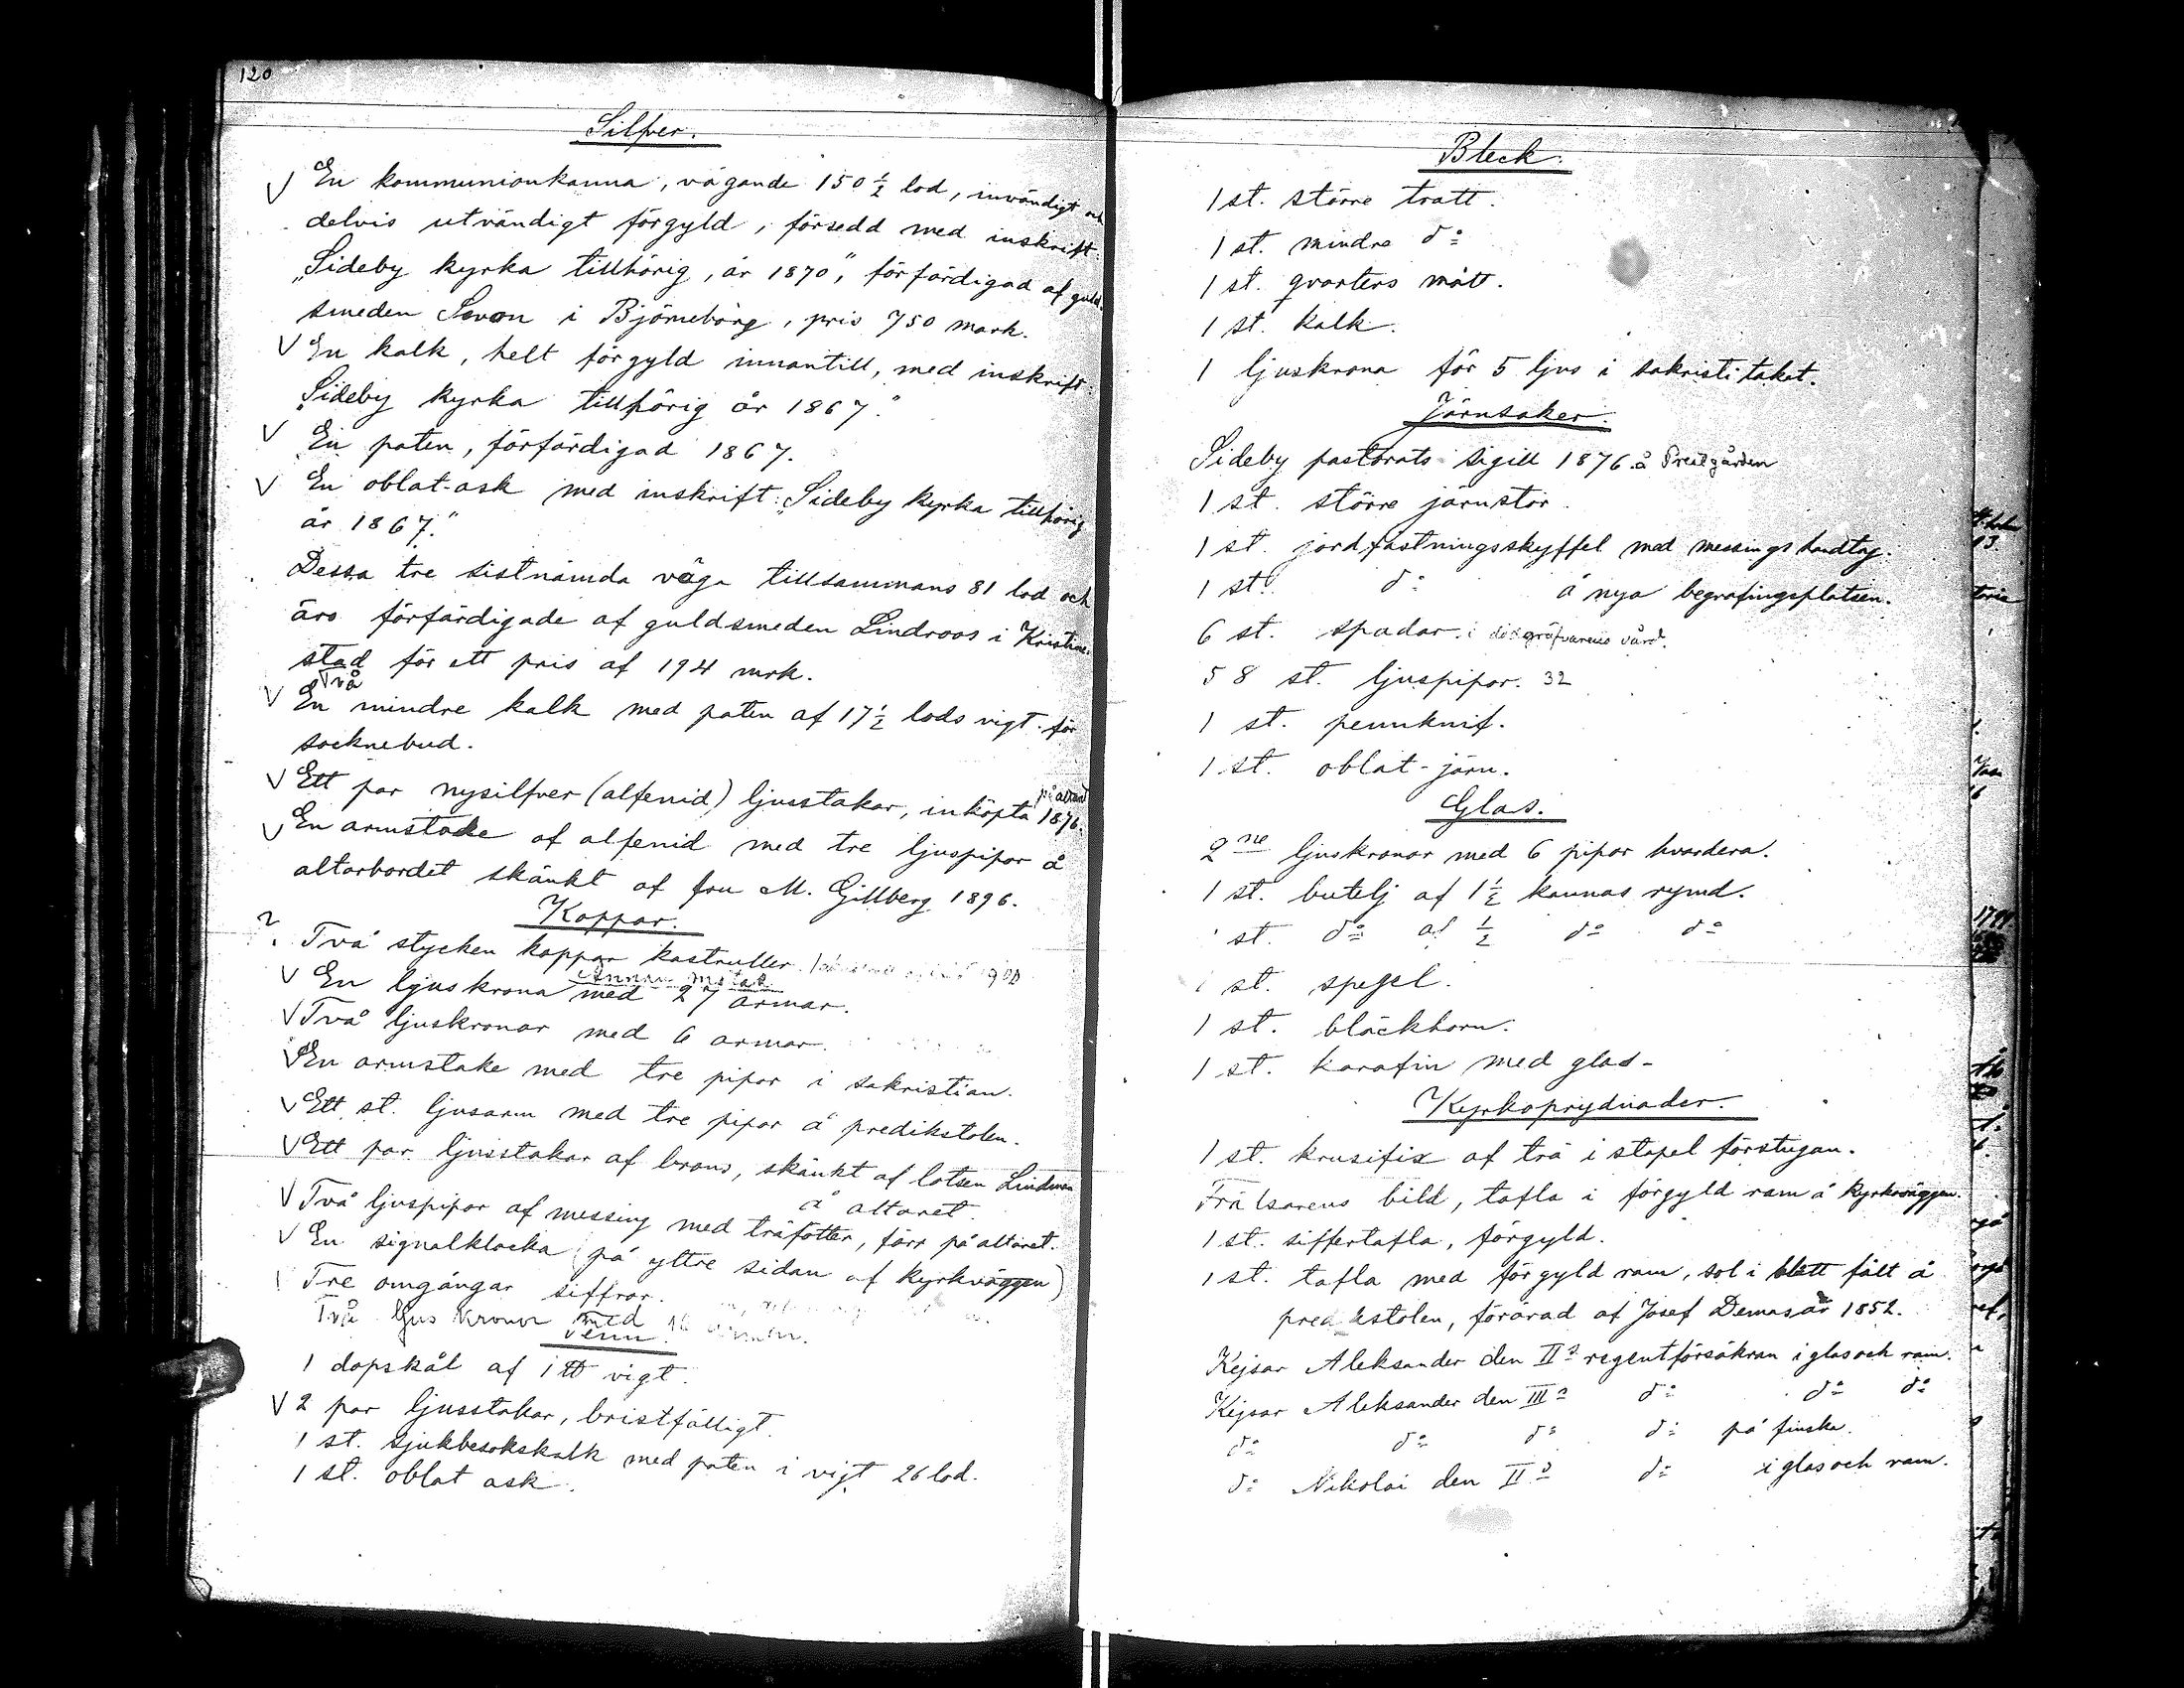 120
Silfver.
V En kommunionkanna, vägande 150 1/2 lod, invändigt och
delvis utvändigt förgyld, försedd med inskrift:
„Sideby kyrka tillhörig, år 1870", förfärdigad af guld-
smeden Sevon i Björneborg, pris 750 mark.
V En kalk, helt förgyld innantill, med inskrift:
„Sideby kyrka tillhörig år 1867."
V En paten, förfärdigad 1867.
V En oblat-ask med inskrift: „Sideby kyrka tillhörig
år 1867."
Dessa tre sistnämda väga tillsammans 81 lod och
äro förfärdigade af guldsmeden Lindroos i Kristine-
stad för ett pris af 194 mrk.
Två
V En mindre kalk med paten af 17 1/2 lods vigt för
socknebud.
på altaret
V Ett par nysilfver (alfenid) ljusstakar, inköpta 1876.
V En armstake af alfenid med tre ljuspipor å
altarbordet skänkt af fru M. Gillberg 1896.
Koppar.
?. Två stycken koppar kastruller 1900
Annan metall
V En ljuskrona med 27 armar.
V Två ljuskronor med 6 armar.
V En armstake med tre pipor i sakristian.
V Ett st. ljusarm med tre pipor å predikstolen.
V Ett par ljusstakar af brons, skänkt af lotsen Lindman
å altaret.
V Två ljuspipor af messing med träfötter, förr på altaret.
V En signalklocka (på yttre sidan af kyrkväggen)
Tre omgångar siffror.
Två ljus kronor med 16 armar.
Tenn.
1 dopskål af 1 ℔ vigt.
V 2 par ljusstakar, bristfälligt.
1 st. sjukbesökskalk med paten i vigt 26 lod.
1 st. oblat ask.
Bleck.
1 st. större tratt.
1 st. mindre d:o
1 st. qvarters mått.
1 st. kalk.
1 ljuskrona för 5 ljus i sakristi taket.
Järnsaker.
Sideby pastorats sigill 1876 å Prestgården
1 st. större järnstör.
1 st. jordfästningsskyffel med messings handtag.
1 st. d:o å nya begrafningsplatsen.
6 st. spadar i dödgräfvarens vård.
58 st. ljuspipor. 32
1 st. pennknif.
1 st. oblat-järn.
Glas.
2ne ljuskronor med 6 pipor hvardera.
1 st. butelj af 1 1/2 kannas rymd.
1 st. d:o af 1/2 d:o d:o
1 st. spegel.
1 st. bläckhorn.
1 st. karafin med glas-
Kyrkoprydnader.
1 st. krusifix af trä i stapel förstugan.
Frälsarens bild, tafla i förgyld ram å kyrkoväggen.
1 st. siffertafla, förgyld.
1 st. tafla med förgyld ram, sol i blått fält å
predikstolen, förärad af Josef Demas år 1852.
Kejsar Aleksander den II:s regentförsäkran i glas och ram.
Kejsar Aleksander den III:s d:o d:o d:o
d:o d:o d:o d:o på finska.
d:o Nikolai den II:s d:o i glas och ram.